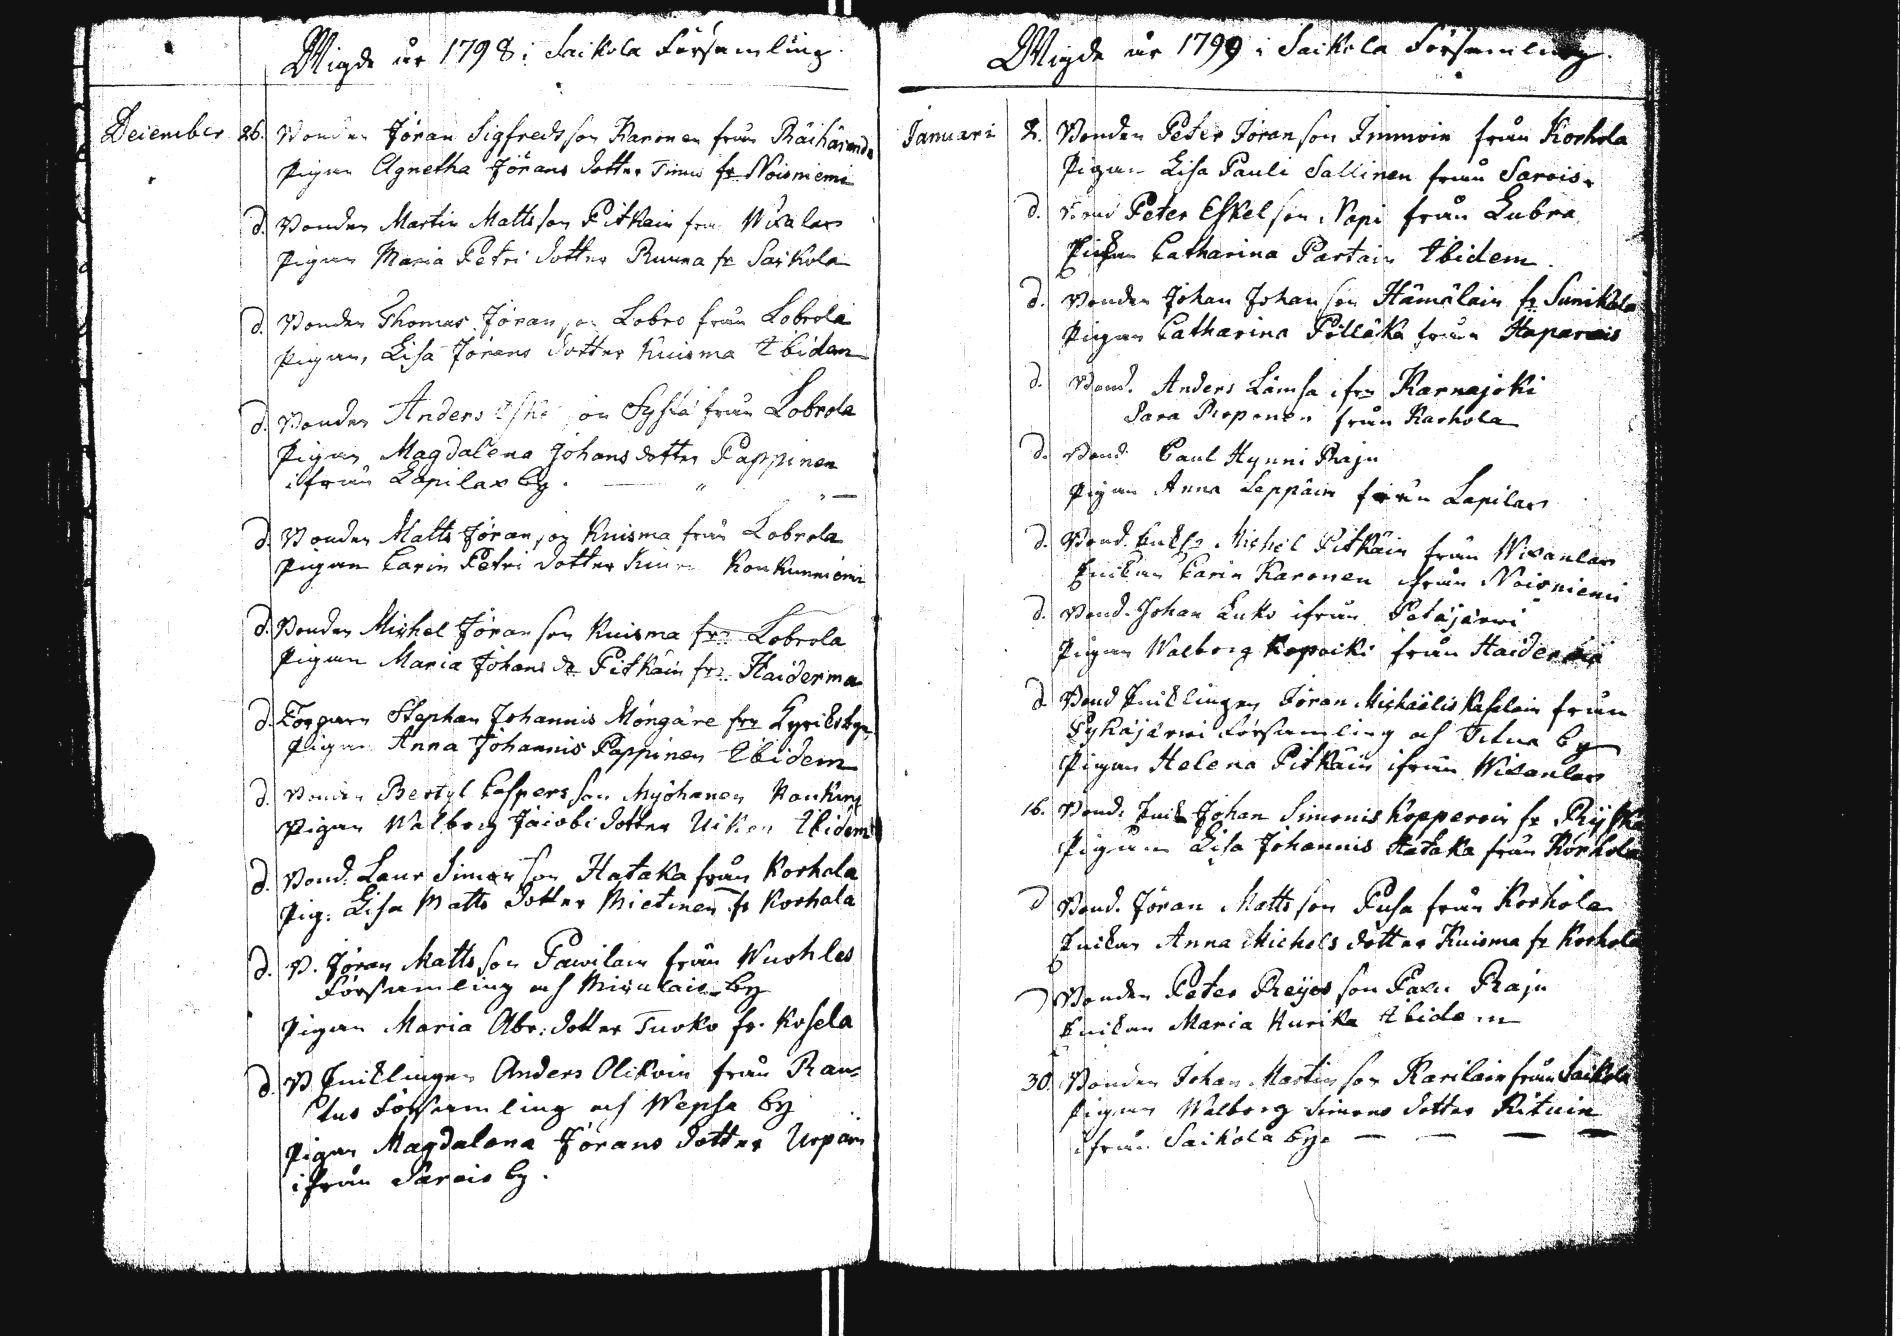 Wigde år 1798 i Saikola Församling.
December 26. Bonden Jöran Sigfredsson Karonen från Räihäranda
Pigan Agnetha Jörans dotter Timus fr Noisniemi
d. Bonden Martin Mattsson Pitkäin från Wixalax
Pigan Maria Petri dotter Ruuna fr Saikola
d. Bonden Thomas Jöransson Lobro från Lobrola
Pigan Lisa Jörans dotter Kuisma Ibidem
d. Bonden Anders Syfiä från Lobrola
Pigan Magdalena Johans dotter Pappinen
ifrån Lapilax by.
d. Bonden Matts Jöransson Kuisma från Lobrola
Pigan Carin Petri dotter Koukunniemi
d. Bonden Michel Jöransson Kuisma frn Lobrola
Pigan Maria Johans dr Pitkäin frn Haiderma
d. Torparn Stephan Johannis Möngäre frn Kyriksby
Pigan Anna Johannis Pappinen Ibidem
d. Bonden Bertyl Caspersson Myöhänen Kouk
Pigan Walborg Jacobi dotter Ibidem
d. Bond. Laur Simonsson Hataka från Korhola
Pig. Lisa Matts dotter Mietinen fr Korhola
d. B. Jöran Mattsson Pawilain från Wuohles
Församling och Miculais by
Pigan Maria Abr. dotter Tuoko fr. Kosela
d. B Enklingen Anders Olikoin från Rau-
tus Församling och Wepsa by
Pigan Magdalena Jörans dotter Urpain
ifrån Sarois by.
Wigde år 1799 i Saikola Församling.
Januari 2. Bonden Peter Jöransson Immoin från Korhola
Pigan Lisa Pauli Sallinen från Sarois
d. Bond Peter Eskelson Napi från Lubra
Enkan Catharina Partain Ibidem
d. Bonden Johan Johansson Hämäläin fr Sunikala
Pigan Catharina Pölläkä från Haparais
d. Bond. Anders Lämsa ifrn Karnajoki
Sara Reponen från Karhola
d. Bond. Paul Hynni Raju
Pigan Anna Leppäin från Lapilax
d. Bond. Michel Pitkäin från Wixanlax
Enkan Carin Karonen ifrån Noisniemi
d. Bond. Johan Luko ifrån Petäjärwi
Pigan Walborg Kopoiki från Haiderma
d. Bond Enklingen Jöran Michaelis Kaselain från
Pyhäjärwi Församling och by
Pigan Helena Pitkäin ifrån Wixanlax
16. Bond. Enk Johan Simonis Kopperoin fr
Pigan Lisa Johannis Hataka från Korhola
d Bond. Jöran Mattsson Pusa från Korhola
Enkan Anna Michels dotter Kuisma fr Korhola
d Bonden Peter Paxu Raju
Enkan Maria Kurika Ibidem
30. Bonden Johan Martinsson Karilain från Saikola
Pigan Walborg Simons dotter Rituin
ifrån Saikola by.